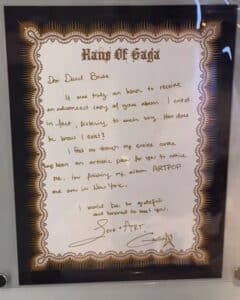 Haus Of Gaga
Dear David Bowie
It was truly an honor to receive
an advanced copy of your album. I cried
in fact, listening to each song. How does
he know I exist?
I feel as though my entire career
has been an artistic plea for you to notice
me. I'm finishing my album ARTPOP
and am in New York.
I would be so grateful
and honored to meet you.
Love + ART,
Gaga